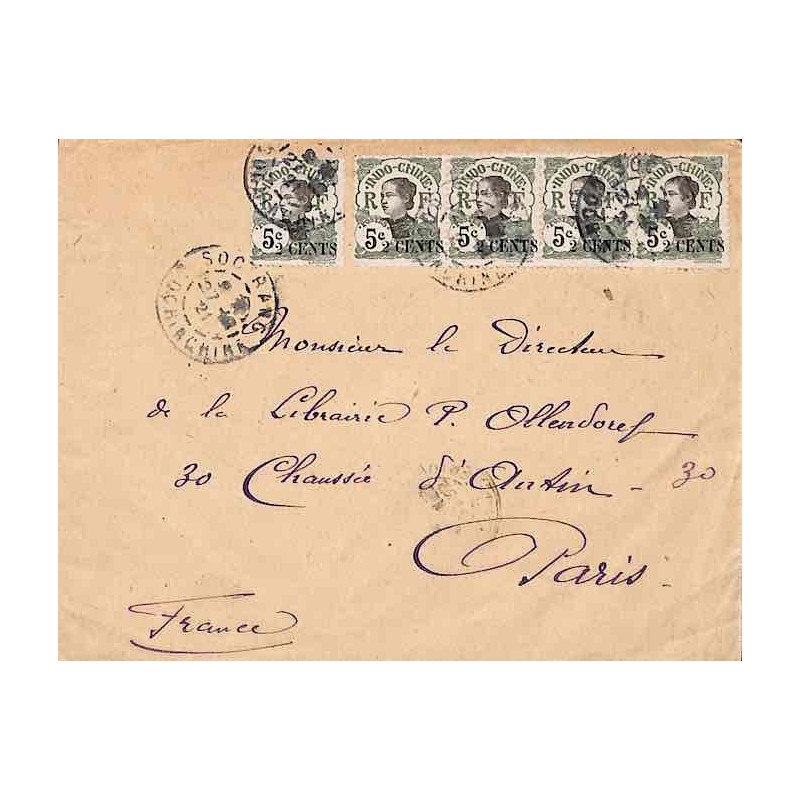 INDO-CHINE R F 5c 2 CENTS
INDO-CHINE R F 5c 2 CENTS
INDO-CHINE R F 5c 2 CENTS
INDO-CHINE R F 5c 2 CENTS
INDO-CHINE R F 5c 2 CENTS
SOCTRANG
COCHINCHINE
Monsieur le Directeur
de la Librairie P. Ollendorff
30 Chaussée d'Antin - 30
Paris.
France